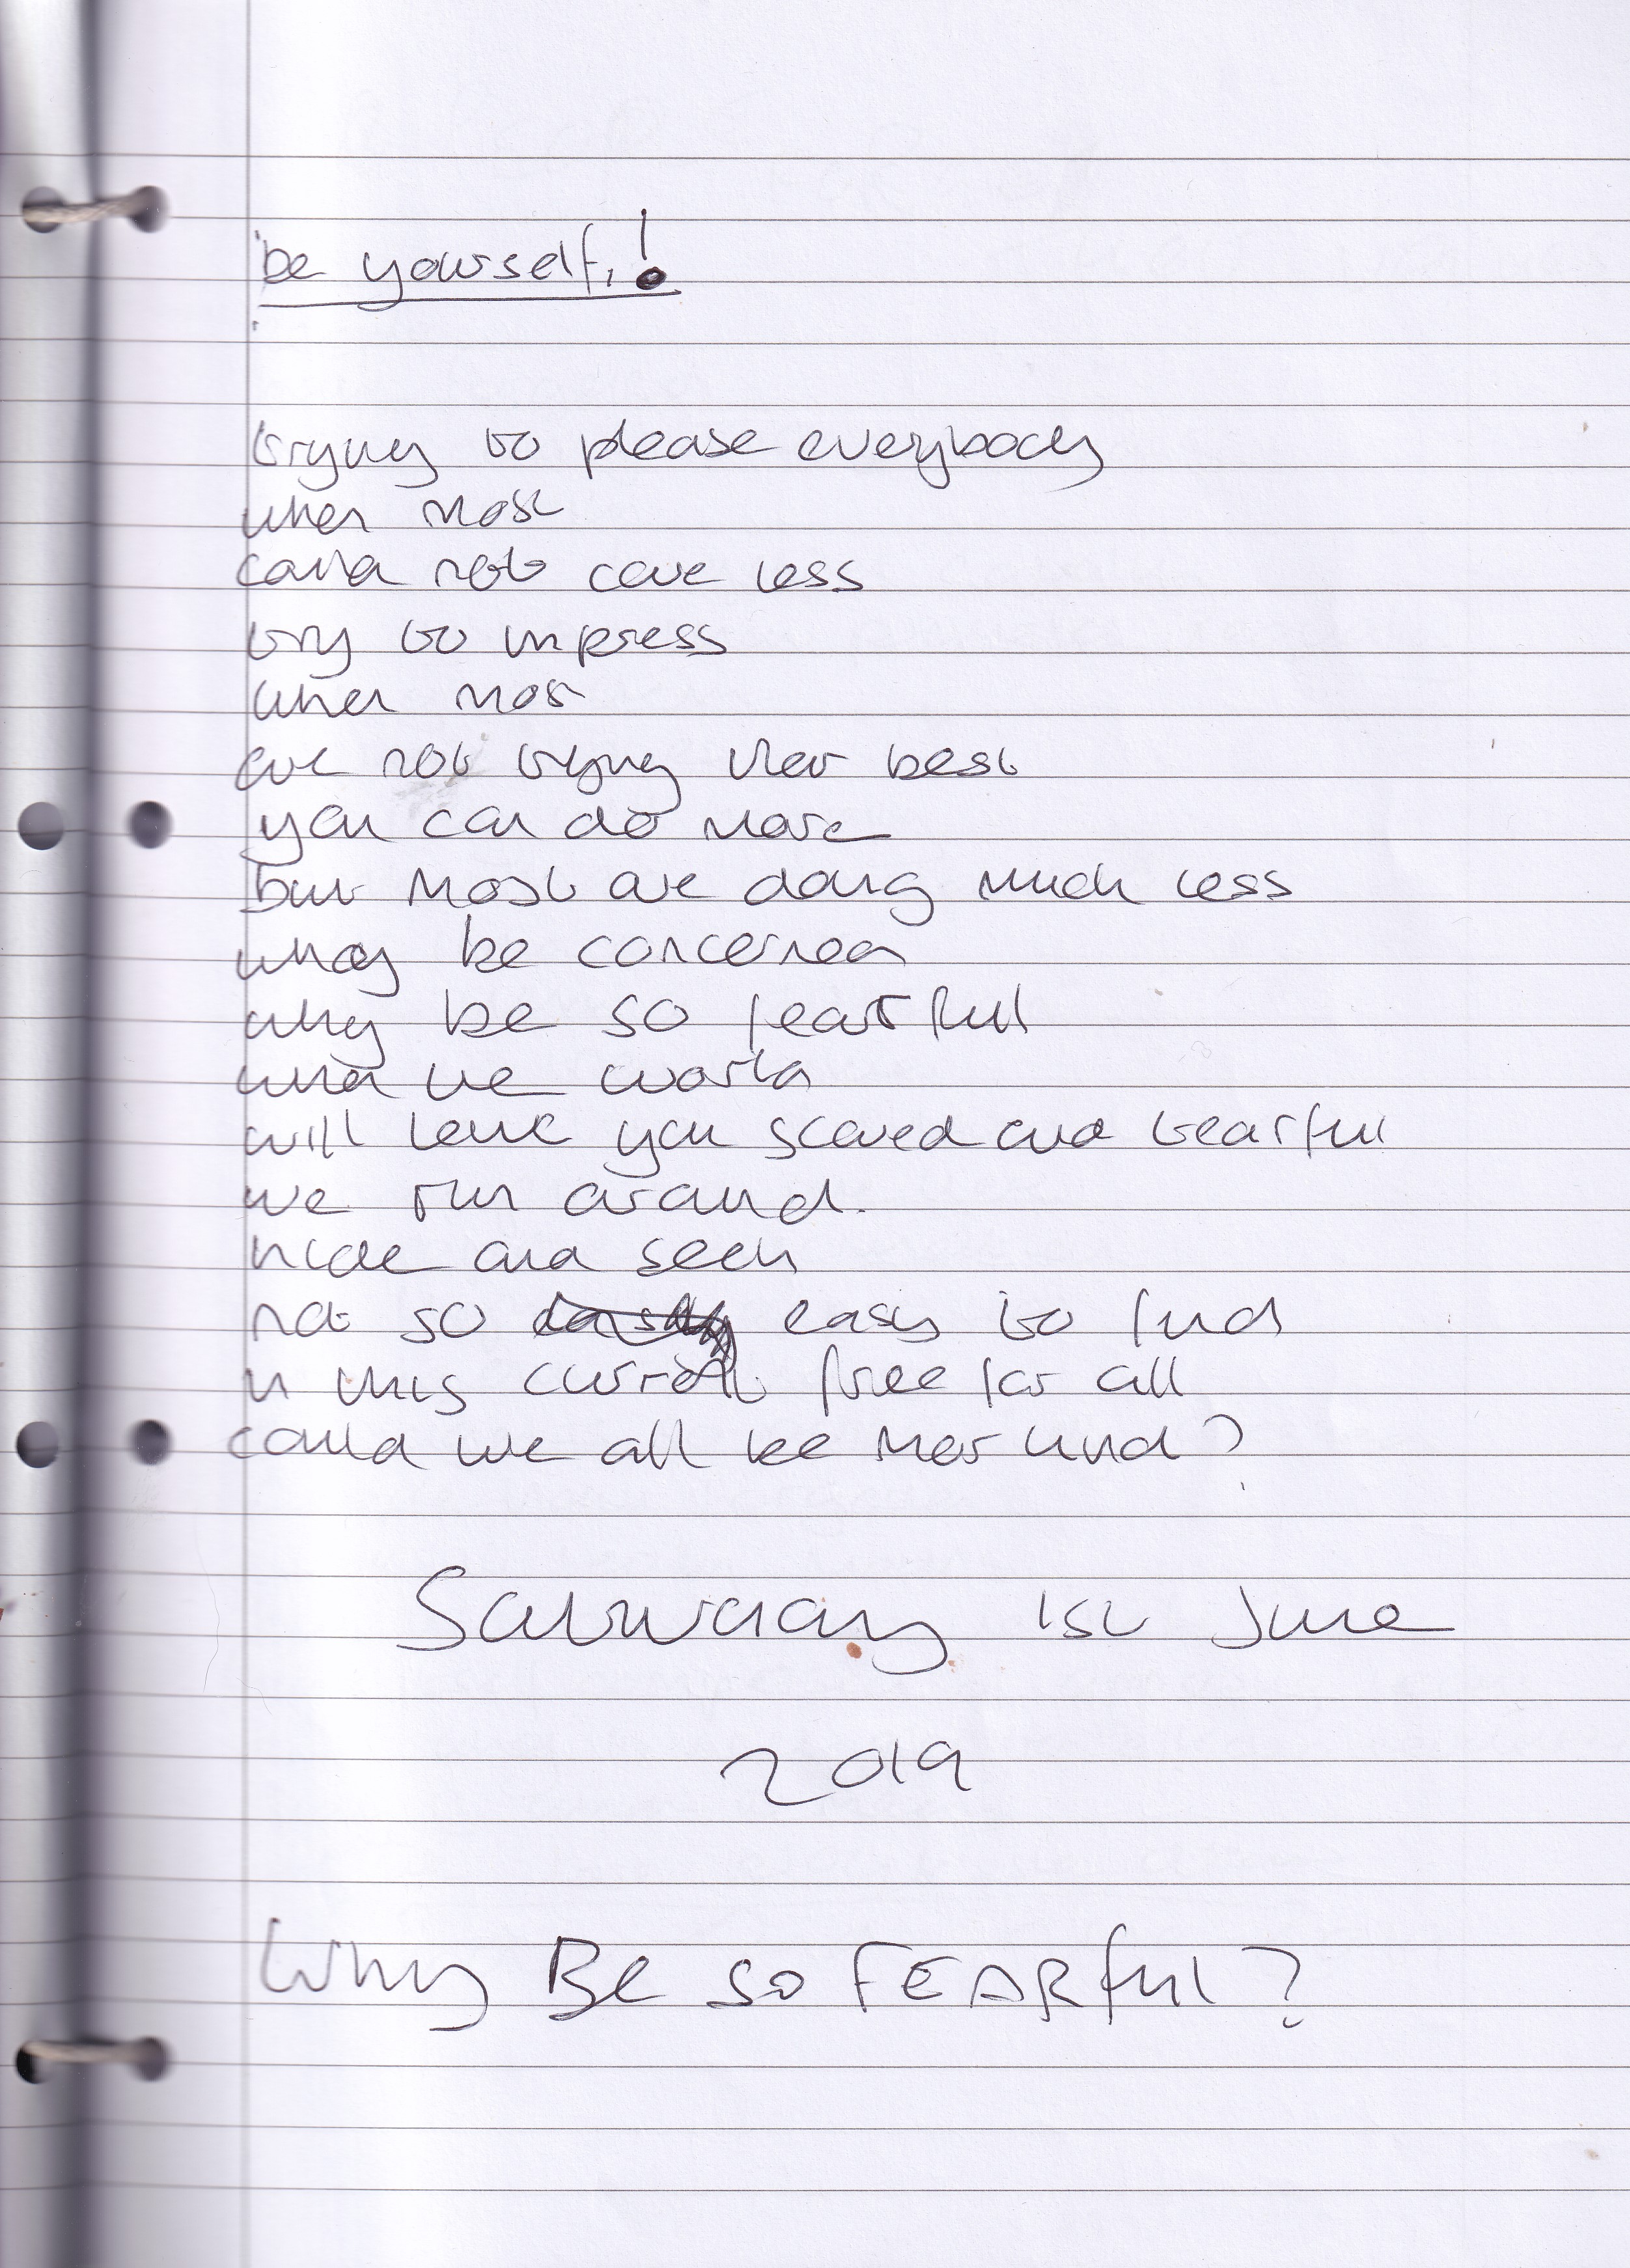 be yourself,!
trying to please everybody
when most
could not care less
try to impress
when most
are not trying their best
you can do more
but most are doing much less
why be concerned
why be so fearful
the world
will leave you scared and tearful
we run around.
hide and seek
not so easy to find
in this current free for all
could we all be more kind?
Saturday 1st June
2019
Why BE so FEARful?